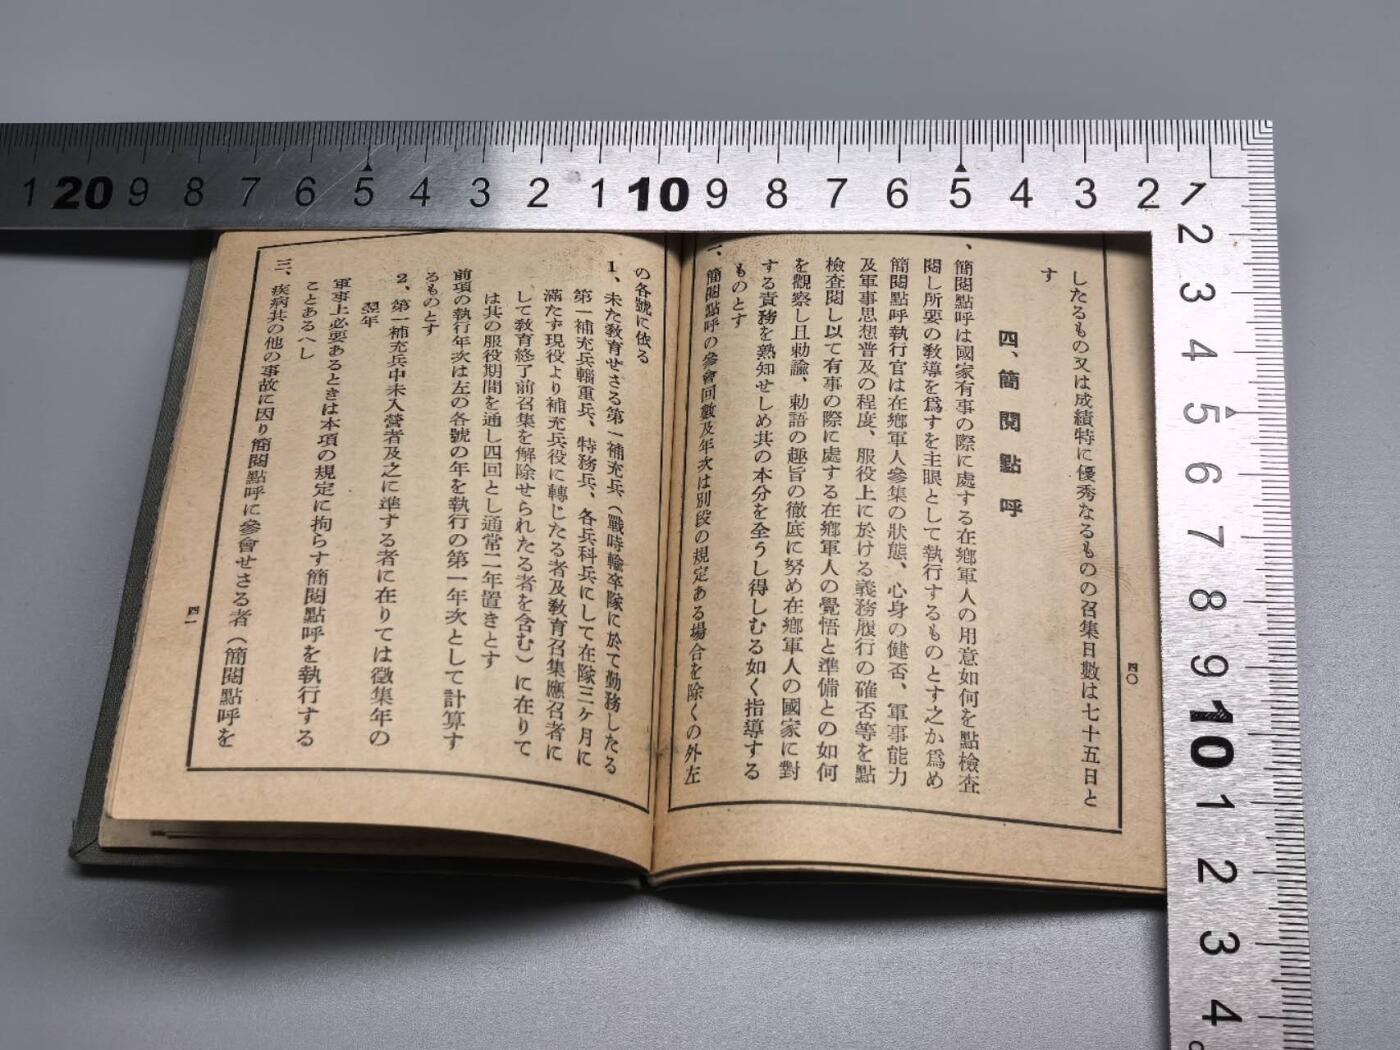 1 20 9 8 7 6 5 4 3 2 1 10 9 8 7 6 5 4 3 2 1
2
3
4
5
6
7
8
9
10
1
2
3
4
四〇
したるもの又は成績特に優秀なるものの召集日數は七十五日と
す
四、簡閱點呼
、簡閱點呼は國家有事の際に處する在鄕軍人の用意如何を點檢査
閱し所要の敎導を爲すを主眼として執行するものとす之か爲め
簡閱點呼執行官は在鄕軍人參集の狀態、心身の健否、軍事能力
及軍事思想普及の程度、服役上に於ける義務履行の確否等を點
檢査閱し以て有事の際に處する在鄕軍人の覺悟と準備との如何
を觀察し且勅諭、勅語の趣旨の徹底に努め在鄕軍人の國家に對
する責務を熟知せしめ其の本分を全うし得しむる如く指導する
ものとす
、簡閱點呼の參會回數及年次は別段の規定ある場合を除くの外左
の各號に依る
1、未た敎育せさる第一補充兵（戰時輸卒隊に於て勤務したる
第一補充兵輜重兵、特務兵、各兵科兵にして在隊三ヶ月に
滿たず現役より補充兵役に轉じたる者及敎育召集應召者に
して敎育終了前召集を解除せられたる者を含む）に在りて
は其の服役期間を通し四回とし通常二年置きとす
前項の執行年次は左の各號の年を執行の第一年次として計算す
るものとす
2、第一補充兵中未入營者及之に準する者に在りては徵集年の
翌年
軍事上必要あるときは本項の規定に拘らす簡閱點呼を執行する
ことあるへし
三、疾病其の他の事故に因り簡閱點呼に參會せさる者（簡閱點呼を
四一